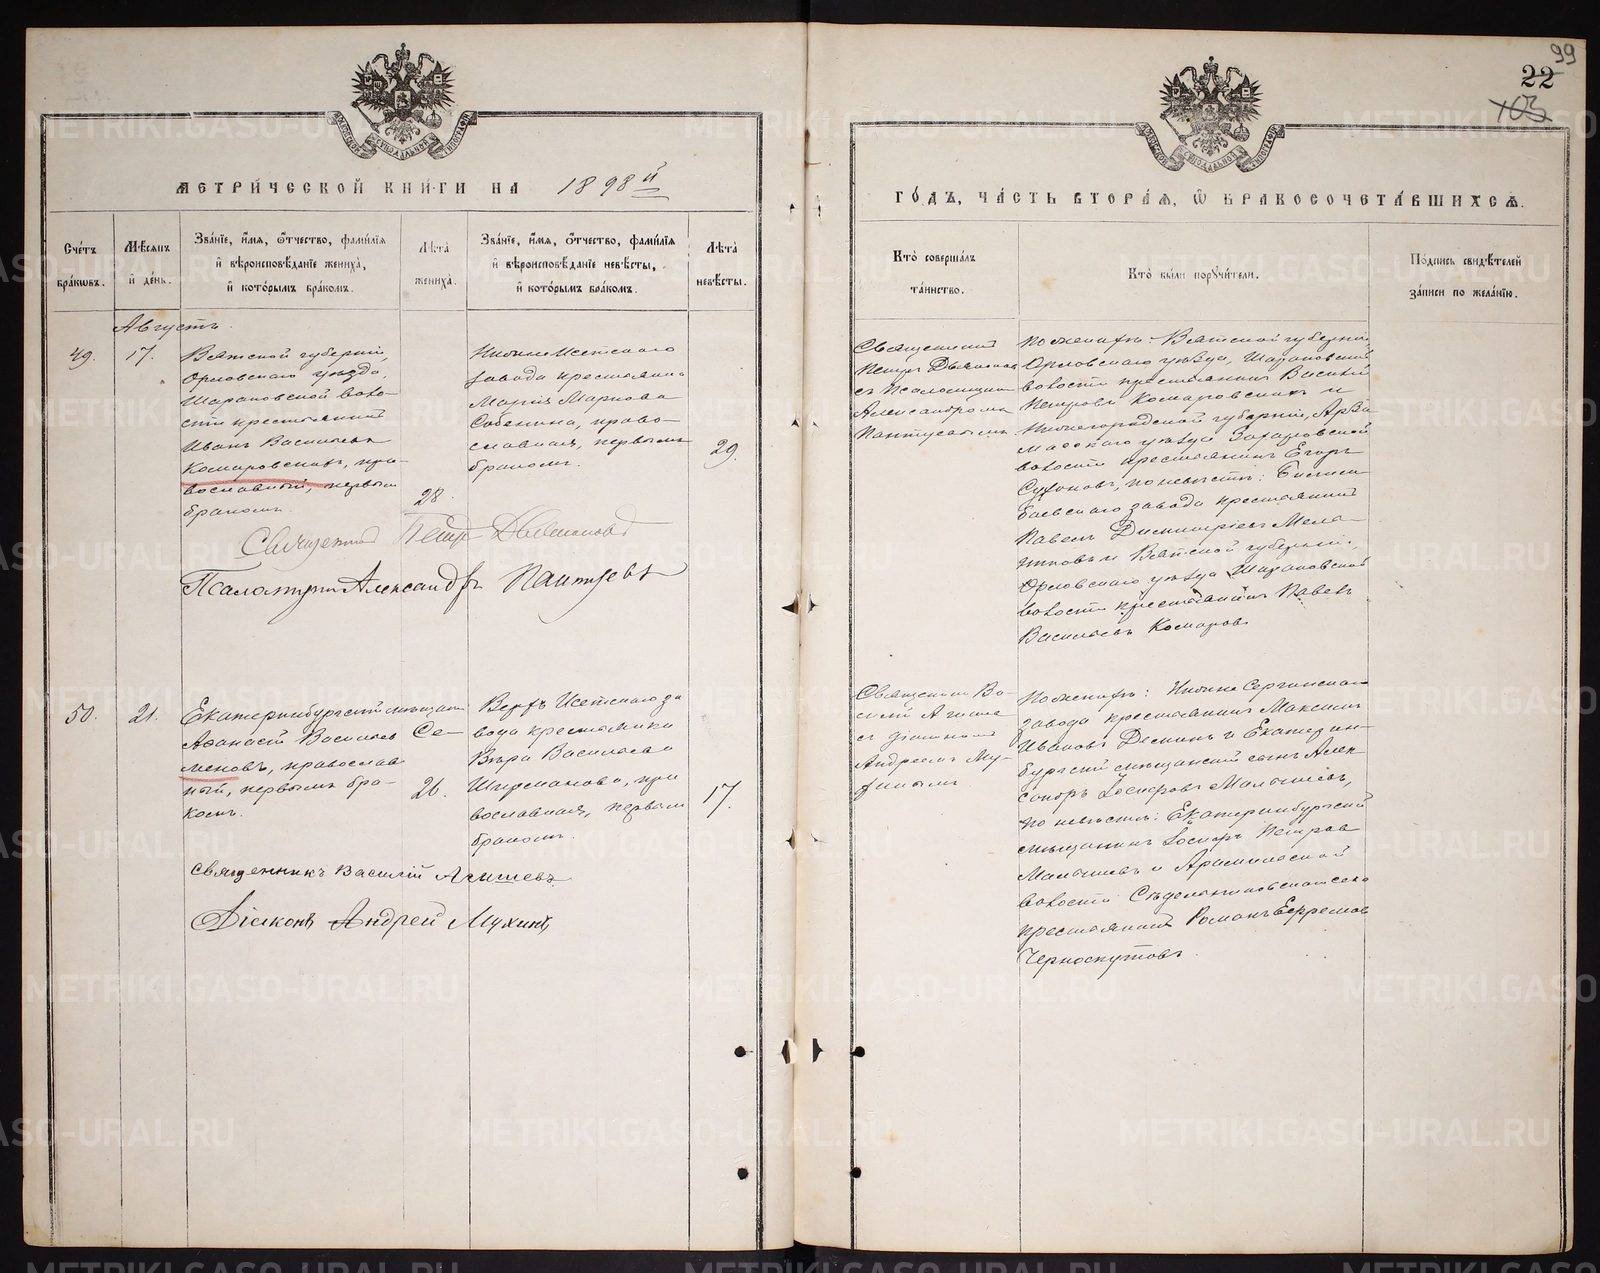 99
22
103
МЕТРИЧЕСКОЙ КНИГИ НА 1898й
ГОДЪ, ЧАСТЬ ВТОРАЯ, Ѿ БРАКОСОЧЕТАВШИХСЯ.
Счетъ браковъ.
Мѣсяцъ и день.
Званіе, имя, отчество, фамилія
и вѣроисповѣданіе жениха,
и которымъ бракомъ.
Лѣта жениха.
Званіе, имя, отчество, фамилія
и вѣроисповѣданіе невѣсты,
и которымъ бракомъ.
Лѣта невѣсты.
Кто совершалъ
таинство.
Кто были поручители.
Подпись свидѣтелей
записи по желанію.
Августъ.
49.
17.
Вятской губерніи,
Орловскаго уѣзда,
Шараповской воло-
сти крестьянинъ
Иванъ Васильевъ
Комаровскихъ, пра-
вославный, первымъ
бракомъ.
28.
Нижне Исетскаго
завода крестьянка
Марія Маркова
Собенина, право-
славная, первымъ
бракомъ.
29.
Священникъ
Петръ
съ Псаломщикомъ
Александромъ
Пантуевымъ
По женихѣ: Вятской губерніи,
Орловскаго уѣзда, Шараповской
волости крестьянинъ Василій
Петровъ Комаровскихъ и
Нижегородской губерніи, Арза
масскаго уѣзда
волости крестьянинъ Егоръ
по невѣстѣ: Билим
баевскаго завода крестьянинъ
Павелъ Димитріевъ
и Вятской губерніи,
Орловскаго уѣзда Шараповской
волости крестьянинъ Павелъ
Васильевъ Комаровъ
Священникъ Петръ
Псаломщикъ Александръ Пантуевъ
50.
21.
Екатеринбургскій мѣщан
Аѳанасій Васильевъ Се-
меновъ, православ
ный, первымъ бра-
комъ.
26.
Верхъ Исетскаго за
вода крестьянка
Вѣра Васильева
Ширманова, пра
вославная, первымъ
бракомъ.
17.
Священникъ Ва-
силій
съ діакономъ
Андреемъ Му-
хинымъ
По женихѣ: Нижне Сергинскаго
завода крестьянинъ Максимъ
Ивановъ и Екатерин-
бургскій мѣщанскій сынъ Алек
сандръ Іосифовъ Малышевъ,
по невѣстѣ: Екатеринбургскій
мѣщанинъ Іосифъ Петровъ
Малышевъ и Арамильской
волости села
крестьянинъ Романъ Ефремовъ
Черноскутовъ.
Священникъ Василій Агишевъ
Діаконъ Андрей Мухинъ
METRIKI.GASO-URAL.RU